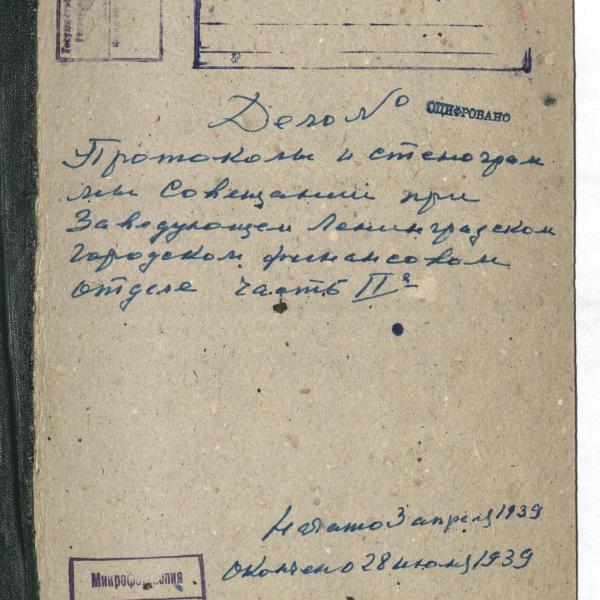 Дело №
ОЦИФРОВАНО
Протоколы и стенограм
мы совещаний при
Заведующем Ленинградском
городском финансовом
отделе часть IIя
Начато 3 апреля 1939
окончено 28 июля 1939